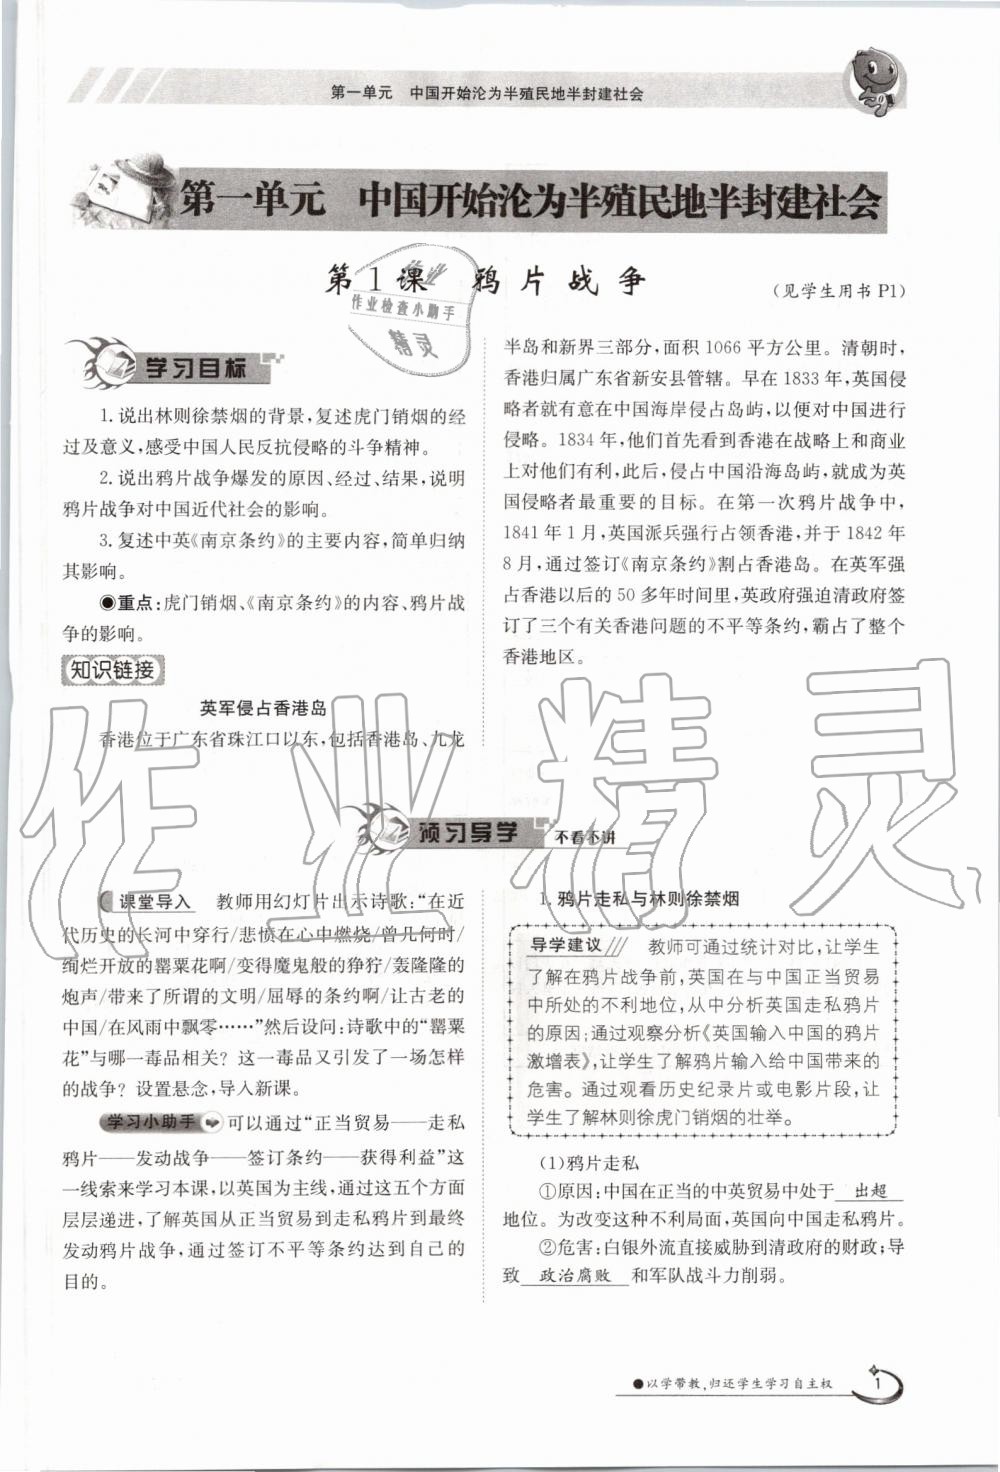 第一单元 中国开始沦为半殖民地半封建社会
第一单元 中国开始沦为半殖民地半封建社会
第1课 鸦片战争
(见学生用书 P1)
作业
作业检查小助手
精灵
学习目标
1. 说出林则徐禁烟的背景,复述虎门销烟的经
过及意义,感受中国人民反抗侵略的斗争精神。
2. 说出鸦片战争爆发的原因、经过、结果,说明
鸦片战争对中国近代社会的影响。
3. 复述中英《南京条约》的主要内容,简单归纳
其影响。
●重点:虎门销烟、《南京条约》的内容、鸦片战
争的影响。
知识链接
英军侵占香港岛
香港位于广东省珠江口以东,包括香港岛、九龙
半岛和新界三部分,面积 1066 平方公里。清朝时,
香港归属广东省新安县管辖。早在 1833 年,英国侵
略者就有意在中国海岸侵占岛屿,以便对中国进行
侵略。1834 年,他们首先看到香港在战略上和商业
上对他们有利,此后,侵占中国沿海岛屿,就成为英
国侵略者最重要的目标。在第一次鸦片战争中,
1841 年 1 月,英国派兵强行占领香港,并于 1842 年
8 月,通过签订《南京条约》割占香港岛。在英军强
占香港以后的 50 多年时间里,英政府强迫清政府签
订了三个有关香港问题的不平等条约,霸占了整个
香港地区。
作业精灵
预习导学 不看不讲
课堂导入 教师用幻灯片出示诗歌:“在近
代历史的长河中穿行/悲愤在心中燃烧/曾几何时/
绚烂开放的罂粟花啊/变得魔鬼般的狰狞/轰隆隆的
炮声/带来了所谓的文明/屈辱的条约啊/让古老的
中国/在风雨中飘零……”然后设问:诗歌中的“罂粟
花”与哪一毒品相关?这一毒品又引发了一场怎样
的战争?设置悬念,导入新课。
学习小助手 可以通过“正当贸易——走私
鸦片——发动战争——签订条约——获得利益”这
一线索来学习本课,以英国为主线,通过这五个方面
层层递进,了解英国从正当贸易到走私鸦片到最终
发动鸦片战争,通过签订不平等条约达到自己的
目的。
1. 鸦片走私与林则徐禁烟
导学建议 教师可通过统计对比,让学生
了解在鸦片战争前,英国在与中国正当贸易
中所处的不利地位,从中分析英国走私鸦片
的原因;通过观察分析《英国输入中国的鸦片
激增表》,让学生了解鸦片输入给中国带来的
危害。通过观看历史纪录片或电影片段,让
学生了解林则徐虎门销烟的壮举。
(1)鸦片走私
①原因:中国在正当的中英贸易中处于 出超
地位。为改变这种不利局面,英国向中国走私鸦片。
②危害:白银外流直接威胁到清政府的财政;导
致 政治腐败 和军队战斗力削弱。
●以学带教,归还学生学习自主权
1